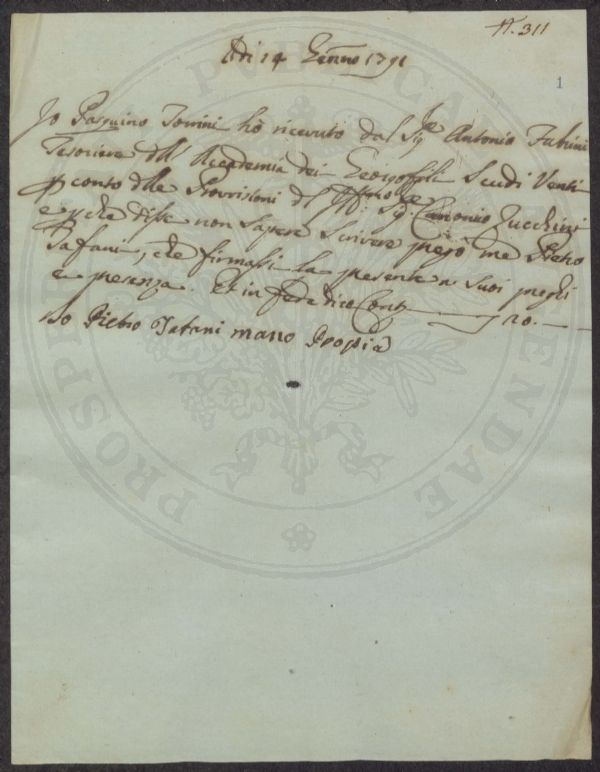 N. 311
Adi 14 Genno 1791
1
Io Pasquino Tonini hò ricevuto dal Sig Antonio Fabrini
Tesoriere dll Accademia dei Georgofili Scudi Venti
p conto dlle Provvisioni dl Sig. Canonico Zucchini
e che disse non sapere scrivere pregò me Pietro
Tafani, che firmassi la presente a Suoi preghi
e presenza. Et in fede dico Conti 20.
Io Pietro Tafani mano Propria
PROSPERITATI PUBLICAE AUGENDAE